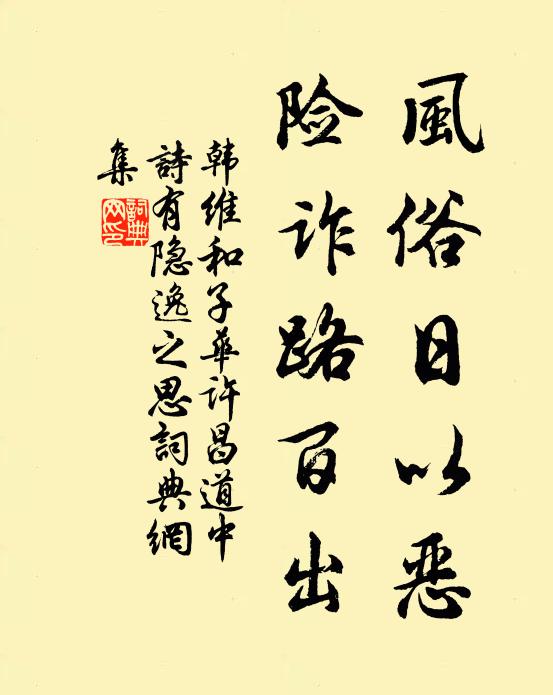 風俗日以恶
险诈路百出
韩维和子华许昌道中
詩有隐逸之思詞典網
集
詞典
网印